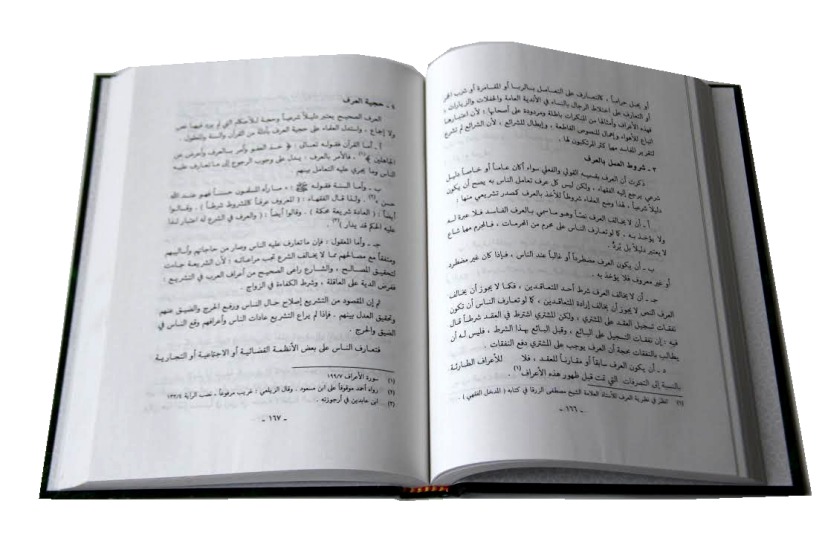 أو يحل حراماً ، كالتعارف على التعامل بالربا أو المقامرة أو شرب الخمر
أو التعارف على اختلاط الرجال بالنساء في الأندية العامة والحفلات والزيارات ،
فهذه الأعراف وأمثالها من المنكرات باطلة ومردودة على أصحابها ؛ لأن اعتبارها
اتباع للأهواء وإهمال للنصوص القاطعة ، وإبطال للشرائع ، لأن الشرائع لم تشرع
لتقرير المفاسد مهما كثر المرتكبون لها .
٣ ـ شروط العمل بالعرف
ذكرت أن العرف بقسميه القولي والفعلي سواء أكان عاماً أو خاصاً دليل
شرعي يرجع إليه الفقهاء ، ولكن ليس كل عرف تعامل الناس به يصح أن يكون
دليلاً شرعياً ، لهذا وضع العلماء شروطاً للأخذ بالعرف كمصدر تشريعي منها :
أ ـ أن لا يخالف العرف نصاً وهو ما سمي بالعرف الفاسد فلا عبرة له
ولا يؤخذ به . كما لو تعارف الناس على محرم من المحرمات ، فالمحرم مهما شاع
لا يعتبر دليلاً بل يُردّ .
ب ـ أن يكون العرف مضطرداً أو غالباً عند الناس ، فإذا كان غير مضطرد
أو غير معروف فلا يؤخذ به .
جـ ـ أن لا يخالف العرف شرط أحد المتعاقدين ، فكما لا يجوز أن يخالف
العرف النص لا يجوز أن يخالف إرادة المتعاقدين ، كما لو تعارف الناس أن تكون
نفقات تسجيل العقد على المشتري ، ولكن المشتري اشترط في العقد شرطاً قال
فيه : إن نفقات التسجيل على البائع ، وقبل البائع بهذا الشرط ، فليس له أن
يطالب بالنفقات بحجة أن العرف يوجب على المشتري دفع النفقات .
د ـ أن يكون العرف سابقاً أو مقارناً للعقد ، فلا للأعراف الطارئة
بالنسبة إلى التصرفات التي تمت قبل ظهور هذه الأعراف(١) .
(١) انظر في نظرية العرف للأستاذ العلامة الشيخ مصطفى الزرقا في كتابه ( المدخل الفقهي ) .
ـ ١٦٦ ـ
٤ ـ حجية العرف
العرف الصحيح يعتبر دليلاً شرعياً وحجة للأحكام التي لم يرد فيها نص
ولا إجماع ، واستدل العلماء على حجية العرف بأدلة من القرآن والسنة والمعقول .
أ ـ أما القرآن فقوله تعالى : ﴿ خذ العفو وأمر بالعرف وأعرض عن
الجاهلين ﴾(١) . فالأمر بالعرف : يدل على وجوب الرجوع إلى ما تعارف عليه
الناس وما يجري عليه التعامل بينهم
ب ـ وأما السنة فقوله ﷺ : « ما رآه المسلمون حسناً فهو عند الله
حسن »(٢) . ولهذا قال الفقهاء : ( المعروف عرفاً كالمشروط شرطاً ) . وقالوا
أيضاً : ( العادة شريعة محكمة ) . وقالوا أيضاً : ( والعرف في الشرع له اعتبار لذا
عليه الحكم قد يدار )(٣) .
جـ ـ وأما المعقول : فإن ما تعارف عليه الناس وصار من حاجاتهم وأساليبهم
ومتفقاً مع مصالحهم مما لا يخالف الشرع تجب مراعاته ؛ لأن الشريعة جاءت
لتحقيق المصالح ، والشارع راعى الصحيح من أعراف العرب في التشريع :
ففرض الدية على العاقلة ، وشرط الكفاءة في الزواج .
ثم إن المقصود من التشريع إصلاح حال الناس ورفع الحرج والضيق عنهم
وتحقيق العدل بينهم . فإذا لم يراع التشريع عادات الناس وأعرافهم وقع الناس في
الضيق والحرج .
فتعارف الناس على بعض الأنظمة القضائية أو الاجتماعية أو التجارية
(١) سورة الأعراف ١٩٩/٧
(٢) رواه أحمد موقوفاً على ابن مسعود . وقال الزيلعي : غريب مرفوعاً ، نصب الراية ١٣٣/٤
(٣) ابن عابدين في أرجوزته .
ـ ١٦٧ ـ